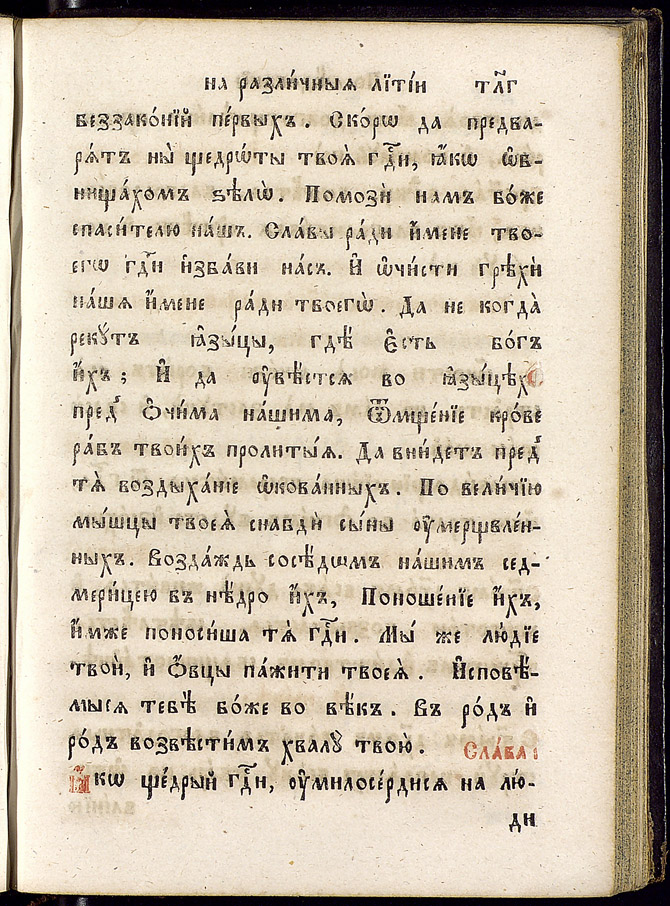 на разли́чныѧ лїтїи тл҃г
беззако́нїй пе́рвыхъ . Ско́рѡ да предва-
рѧ́тъ ны̀ щедрѡ́ты твоѧ̀ гдⷭ҇и, ꙗ҆́кѡ ѡ҆б-
нища́хомъ ѕѣлѡ̀ . Помозѝ намъ бо́же
спаси́телю на́шъ . Сла́вы ра́ди и҆́мене тво-
егѡ̀ гдⷭ҇и и҆зба́ви на́съ . И҆ ѡ҆чи́сти грѣхѝ
на́шѧ и҆́мене ра́ди твоегѡ̀ . Да не когда̀
рекꙋ́тъ ꙗ҆зы́цы, гдѣ̀ є҆́сть бо́гъ
и҆́хъ ; И҆ да ᲂу҆вѣ́стсѧ во ꙗ҆зы́цѣхъ
пред̾ ѻ҆чи́ма на́шима, Ѿмще́нїе кро́ве
ра́бъ твои́хъ пролиты́ѧ . Да вни́детъ пред̾
тѧ̀ воздыха́нїе ѡ҆кова́нныхъ . По вели́чїю
мы́шцы твоеѧ̀ снабдѝ сы́ны ᲂу҆мерщвле́н-
ныхъ . Возда́ждь сосѣ́дѡмъ на́шим сед-
мери́цею въ нѣ́дро и҆́хъ, Поноше́нїе и҆́хъ,
и҆́мже поноси́ша тѧ̀ гдⷭ҇и . Мы́ же лю́дїе
твоѝ, и҆ ѻ҆́вцы па́жити твоеѧ̀ . И҆сповѣ́-
мысѧ тебѣ̀ бо́же во вѣ́къ . Въ ро́дъ и҆
ро́дъ возвѣсти́мъ хвалꙋ̀ твою̀ . Сла́ва :
Ꙗ҆́кѡ ще́дрый гдⷭ҇и, ᲂу҆милосе́рдисѧ на лю́-
ди